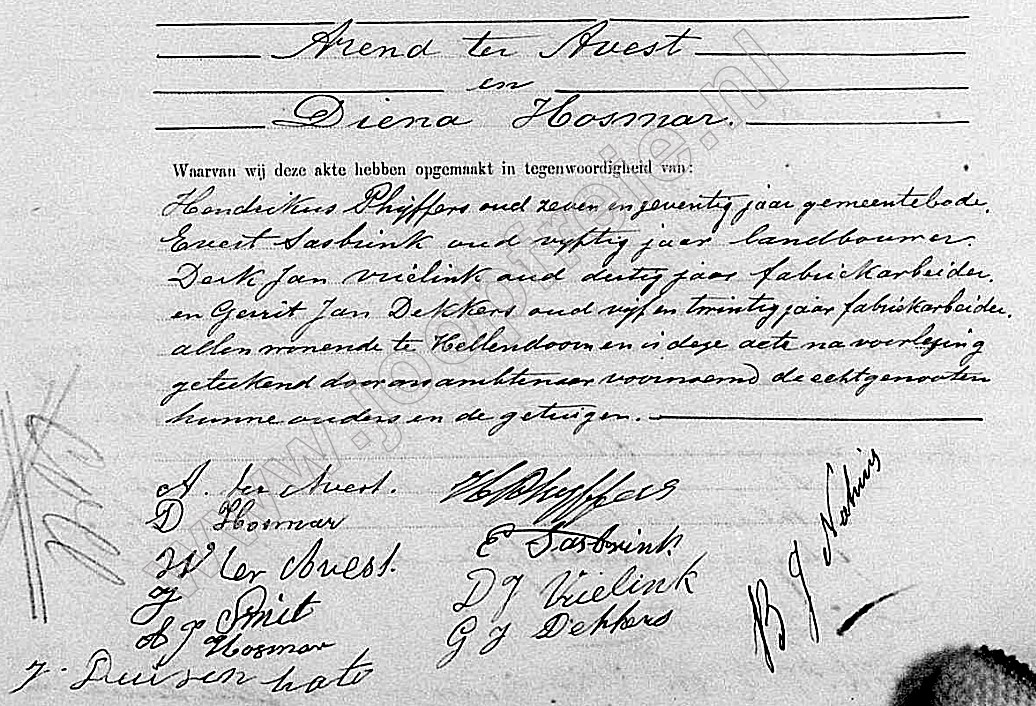 Arend ter Avest
en
Diena Hosmar.
Waarvan wij deze akte hebben opgemaakt in tegenwoordigheid van:
Hendrikus Phijffers oud zeven en zeventig jaar gemeentebode,
Evert Sasbrink oud vijftig jaar landbouwer.
Derk Jan Vrielink oud dertig jaar fabriekarbeider,
en Gerrit Jan Dekkers oud vijf en twintig jaar fabriekarbeider,
allen wonende te Hellendoorn en is deze acte na voorlezing
geteekend door ons ambtenaar voornoemd de echtgenooten
hunne ouders en de getuigen.
A. ter Avest. HPhyffers
D Hosmar
E Sasbrink.
W ter Avest.
D J Vrielink
J Smit
G J Dekkers
A J Hosmar
J.
B J Nahuis
www.joepvreie.nl